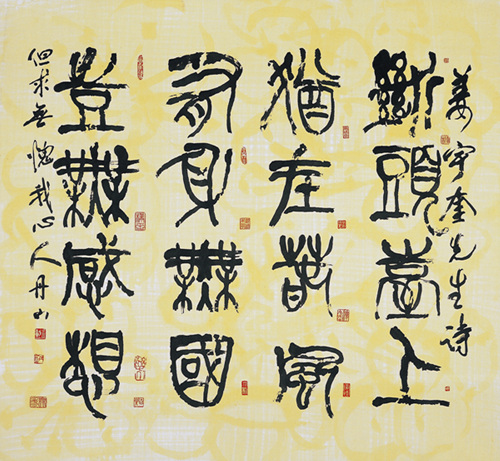 姜宇奎先生詩
斷頭臺上
猶在春風
有身無國
豈無感想
但求無愧我心人丹山